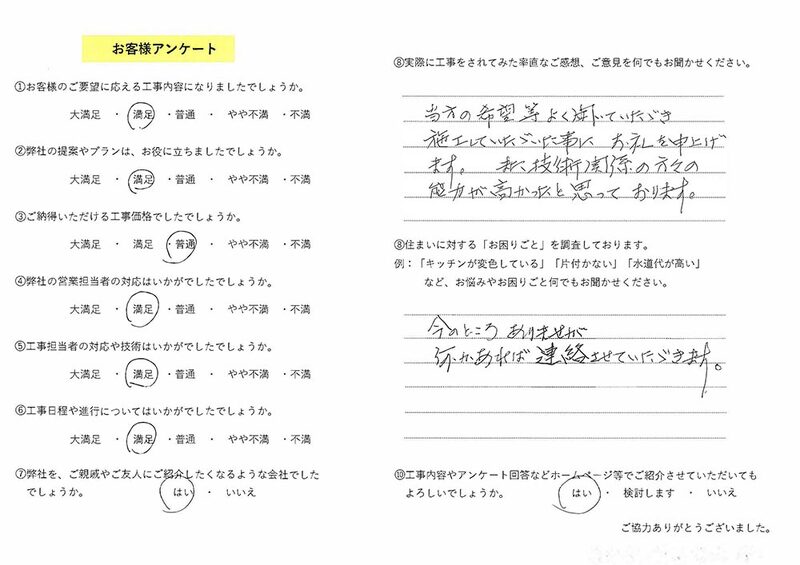 お客様アンケート
①お客様のご要望に応える工事内容になりましたでしょうか。
大満足 ・ 満足 ・普通 ・ やや不満 ・不満
②弊社の提案やプランは、お役に立ちましたでしょうか。
大満足 ・ 満足 ・普通 ・ やや不満 ・不満
③ご納得いただける工事価格でしたでしょうか。
大満足 ・ 満足 ・普通 ・ やや不満 ・不満
④弊社の営業担当者の対応はいかがでしたでしょうか。
大満足 ・ 満足 ・普通 ・ やや不満 ・不満
⑤工事担当者の対応や技術はいかがでしたでしょうか。
大満足 ・ 満足 ・普通 ・ やや不満 ・不満
⑥工事日程や進行についてはいかがでしたでしょうか。
大満足 ・ 満足 ・普通 ・ やや不満 ・不満
⑦弊社を、ご親戚やご友人にご紹介したくなるような会社でした
でしょうか。 はい ・ いいえ
⑧実際に工事をされてみた率直なご感想、ご意見を何でもお聞かせください。
当方の希望等よく いていただき
施工していただいた事に お礼を申上げ
ます。 技術関係の方々の
能力が高かったと思っております。
⑧住まいに対する「お困りごと」を調査しております。
例：「キッチンが変色している」「片付かない」「水道代が高い」
など、お悩みやお困りごと何でもお聞かせください。
今のところ ありませんが
何かあれば 連絡させていただきます。
⑩工事内容やアンケート回答などホームページ等でご紹介させていただいても
よろしいでしょうか。 はい ・ 検討します ・ いいえ
ご協力ありがとうございました。